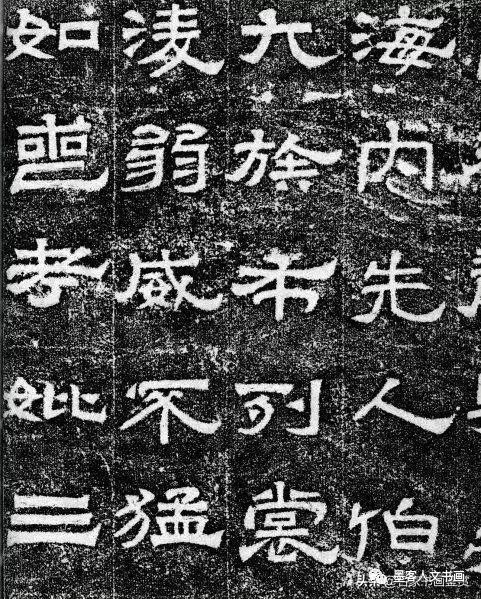 海内先人伯
九族布列裳
淩弱威不猛
如喪考妣三
墨客人文书画